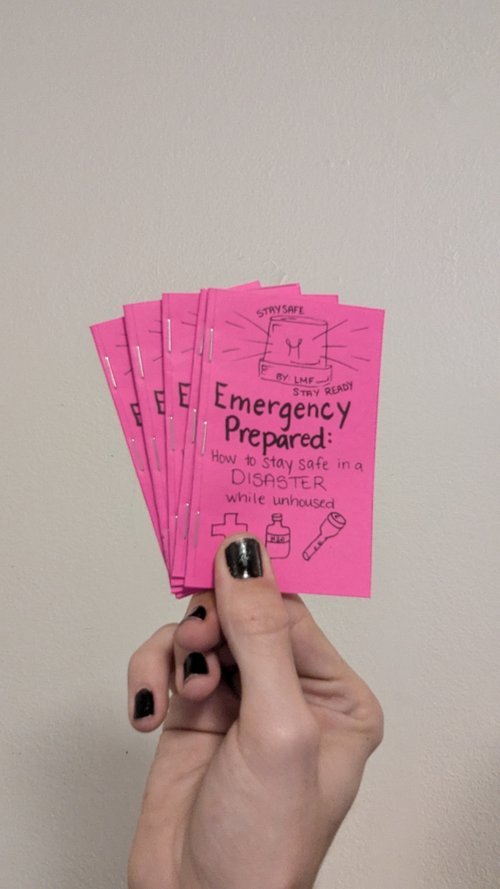 STAY SAFE
BY: LMF
STAY READY
Emergency
Prepared:
How to stay safe in a
DISASTER
while unhoused
H2O
E
E
E